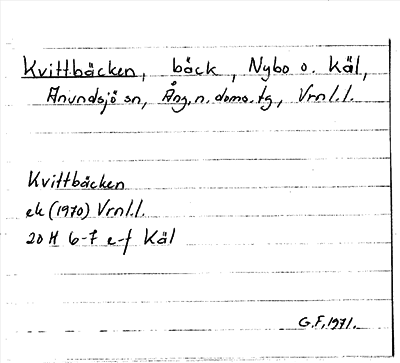 Kvittbäcken, bäck, Nybo o. Käl,
Anundsjö sn, Ång. n. doms.tg, Vrnl.l.
Kvittbäcken
ek (1970) Vrnl.l.
20 H 6-7 e-f Käl
G.F. 1971.